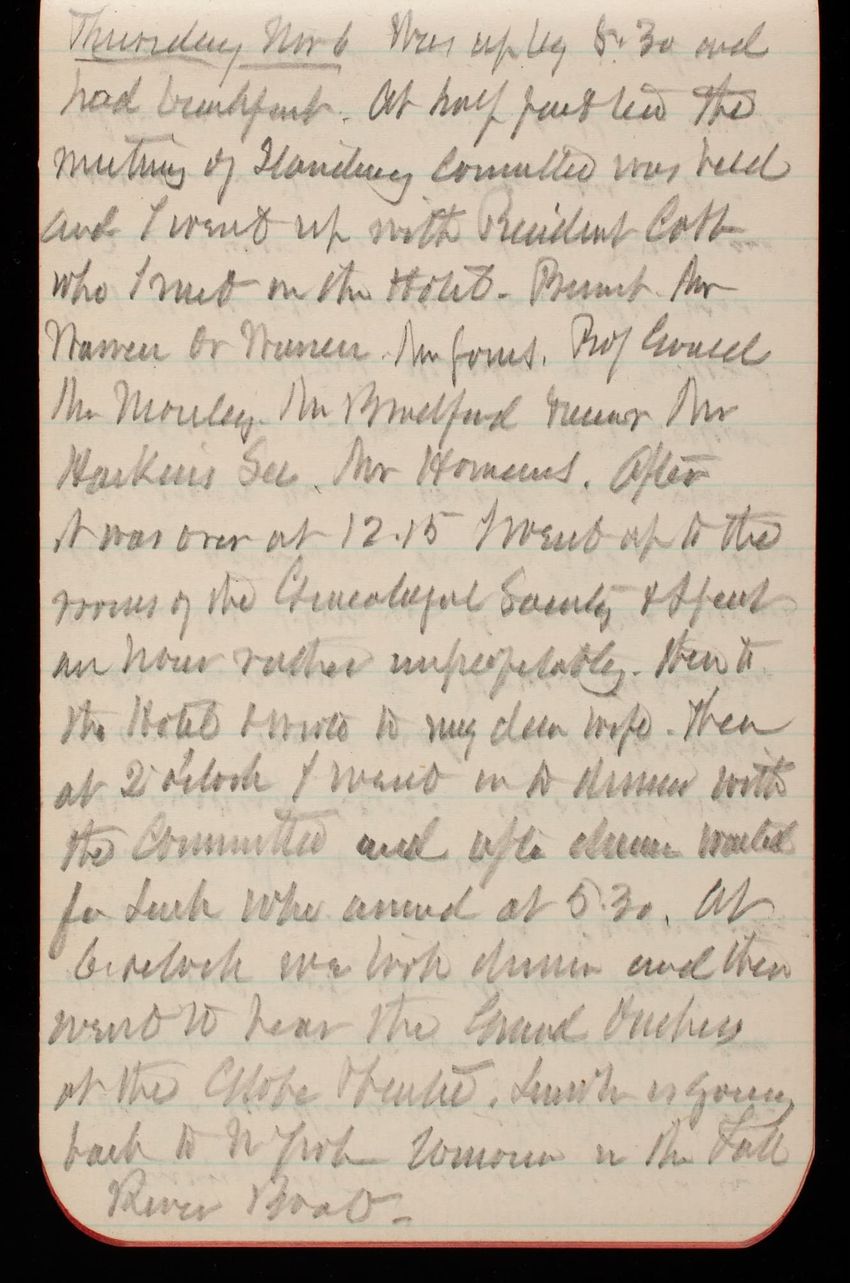 Thursday Nov 6 Was up by 8.30 and
had breakfast. At half past ten the
meeting of Standing Committee was held
and I went up with President Cobb
who I met on the Hotel. Present Mr
Warren Dr Warren. Mr Jones. Prof
Mr Morley. Mr Bradford Mr
Harkins Sec. Mr Homans. After
it was over at 12.15 I went up to the
rooms of the Society & spent
an hour rather unprofitably. Then to
the Hotel & wrote to my dear wife. Then
at 2 o'clock I went in to dinner with
the Committee and after dinner waited
for who arrived at 5.30. At
6 o'clock we took dinner and then
went to hear the Grand Duchess
at the Globe Theatre. is going
back to N York tomorrow in the Fall
River Boat.